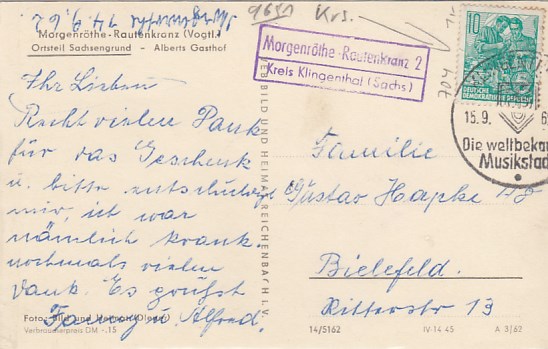 Morgenröthe 14.9.62.
Morgenröthe-Rautenkranz (Vogtl.)
Ortsteil Sachsengrund - Alberts Gasthof
Ihr Lieben
Recht vielen Dank
für das Geschenk
u. bitte entschuldigt
mir, ich war
nämlich krank.
nochmals vielen
Dank. Es grüßt
Alfred
Foto: Bild und Heimat
Verbraucherpreis DM -.15
BILD UND HEIMAT REICHENBACH I. V.
Krs.
Morgenröthe-Rautenkranz 2
Kreis Klingenthal (Sachs)
10
DEUTSCHE
DEMOKRATISCHE REPUBLIK
15.9. 6
Die weltbekan
Musikstad
Familie
Gustav Hapke
Bielefeld.
Ritterstr 19
14/5162 IV-14-45 A 3/62